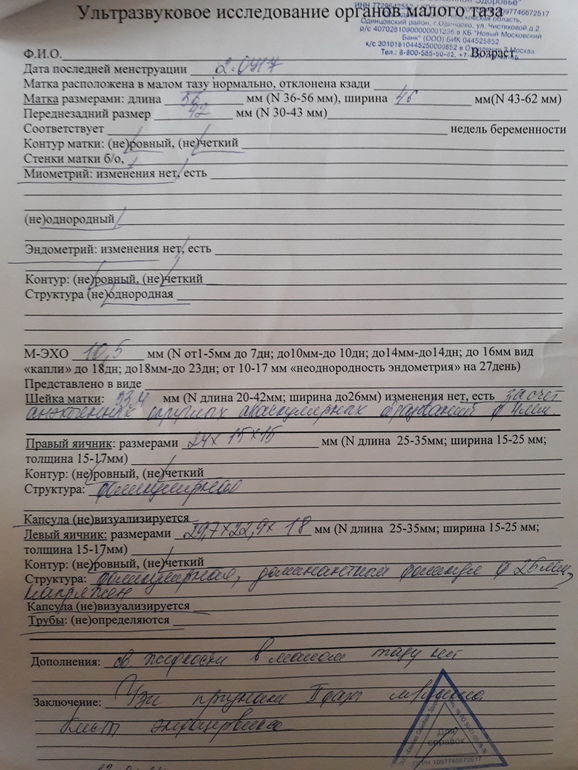 Ультразвуковое исследование органов малого таза
Одинцовский район, г.Одинцово, ул. Чистяковой д.2
Ф.И.О. Возраст
Дата последней менструации 2.04.17
Матка расположена в малом тазу нормально, отклонена кзади
Матка размерами: длина 56 мм (N 36-56 мм), ширина 46 мм(N 43-62 мм)
Переднезадний размер 42 мм (N 30-43 мм)
Соответствует недель беременности
Контур матки: (не)ровный, (не)четкий
Стенки матки б/о,
Миометрий: изменения нет, есть
(не)однородный
Эндометрий: изменения нет, есть
Контур: (не)ровный, (не)четкий
Структура (не)однородная
М-ЭХО 10,5 мм (N от1-5мм до 7дн; до10мм-до 10дн; до14мм-до14дн; до 16мм вид
«капли» до 18дн; до18мм-до 23дн; от 10-17 мм «неоднородность эндометрия» на 27день)
Представлено в виде
Шейка матки: 33,4 мм (N длина 20-42мм; ширина до26мм) изменения нет, есть за счет
анэхогенных округлых аваскулярных образований ф 4 мм
Правый яичник: размерами 24х15х15 мм (N длина 25-35мм; ширина 15-25 мм;
толщина 15-17мм)
Контур: (не)ровный, (не)четкий
Структура: фолликулярная
Капсула (не)визуализируется
Левый яичник: размерами 29,7х22,9х18 мм (N длина 25-35мм; ширина 15-25 мм;
толщина 15-17мм)
Контур: (не)ровный, (не)четкий
Структура: фолликулярная, доминантный фолликул ф 26мм,
напряжен
Капсула (не)визуализируется
Трубы: (не)определяются
Дополнения: св жидкости в малом тазу нет
Заключение: Узи признаки II фазы м цикла
Кисты эндоцервикса
Для справок